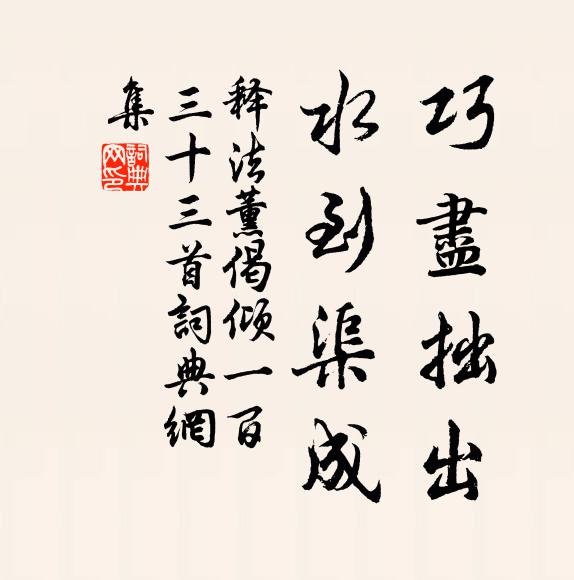 巧盡拙出
水到渠成
释法薰偈倾一百
三十三首詞典網
集
詞典網印